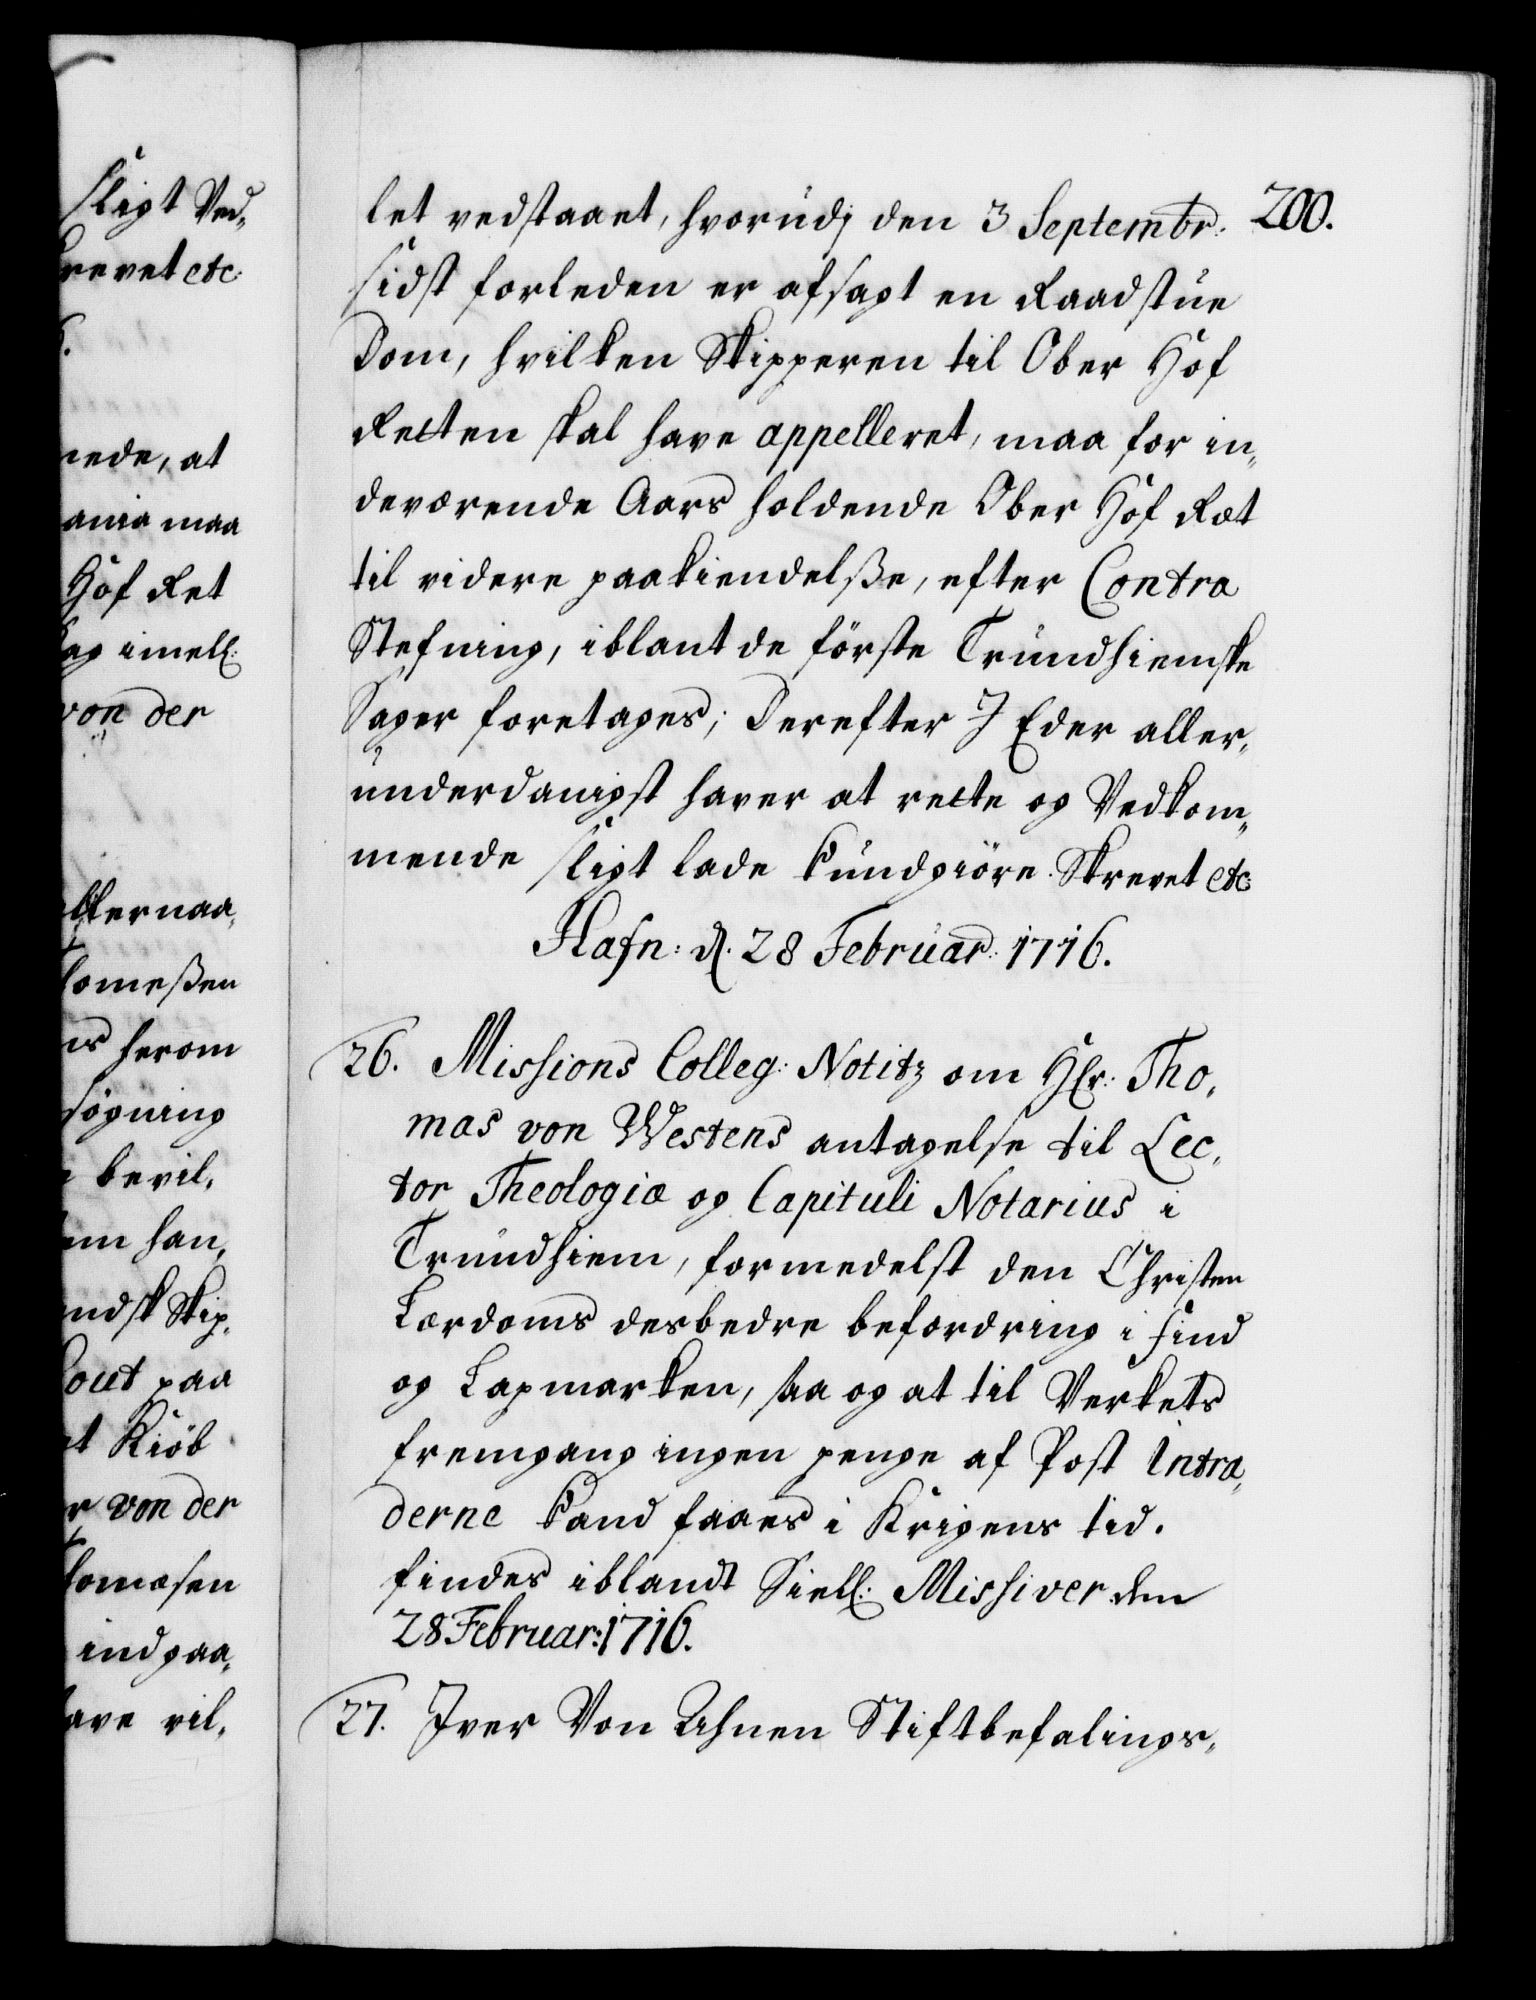 sligt Ved„
revet etc:
nede, at
ania maa
Hof Ret
ag imell:
von der
lkernaa„
lomeßen
is herom
søgning
bevil„
em han„
ndsk Skip„
out paa
at Kiöb
r von der
lomesen
indgaa„
ave vil„
200.
let vedstaaet, hvorudj den 3 Septembr:
sidst forleden er afsagt en Raadstue
Dom, hvilken Skipperen til Ober Hof
Retten skal have appelleret, maa for in„
deværende Aars holdende Ober Hof Ræt
til videre paakiendelße, efter Contra
Stefning, iblant de förste Trundhiemske
Sager foretages; Derefter J Eder aller„
underdanigst haver at rette og Vedkom„
mende sligt lade kundgiöre. Skrevet etc:
Hafn: d. 28 Februar: 1716.
26. Missions Colleg: Notitz om Hr: Tho„
mas von Westens antagelse til Lec„
tor Theologiæ og Capituli Notarius i
Trundhiem, formedelst den Christen
Lærdoms desbedre befordring i Find
og Lapmarken, saa og at til Verkets
fremgang ingen penge af Post Intra„
derne kand faaes i Krigens tid.
findes iblandt Siell: Missiver den
28 Februar: 1716.
27. Iver Von Ahnen Stiftbefalings„